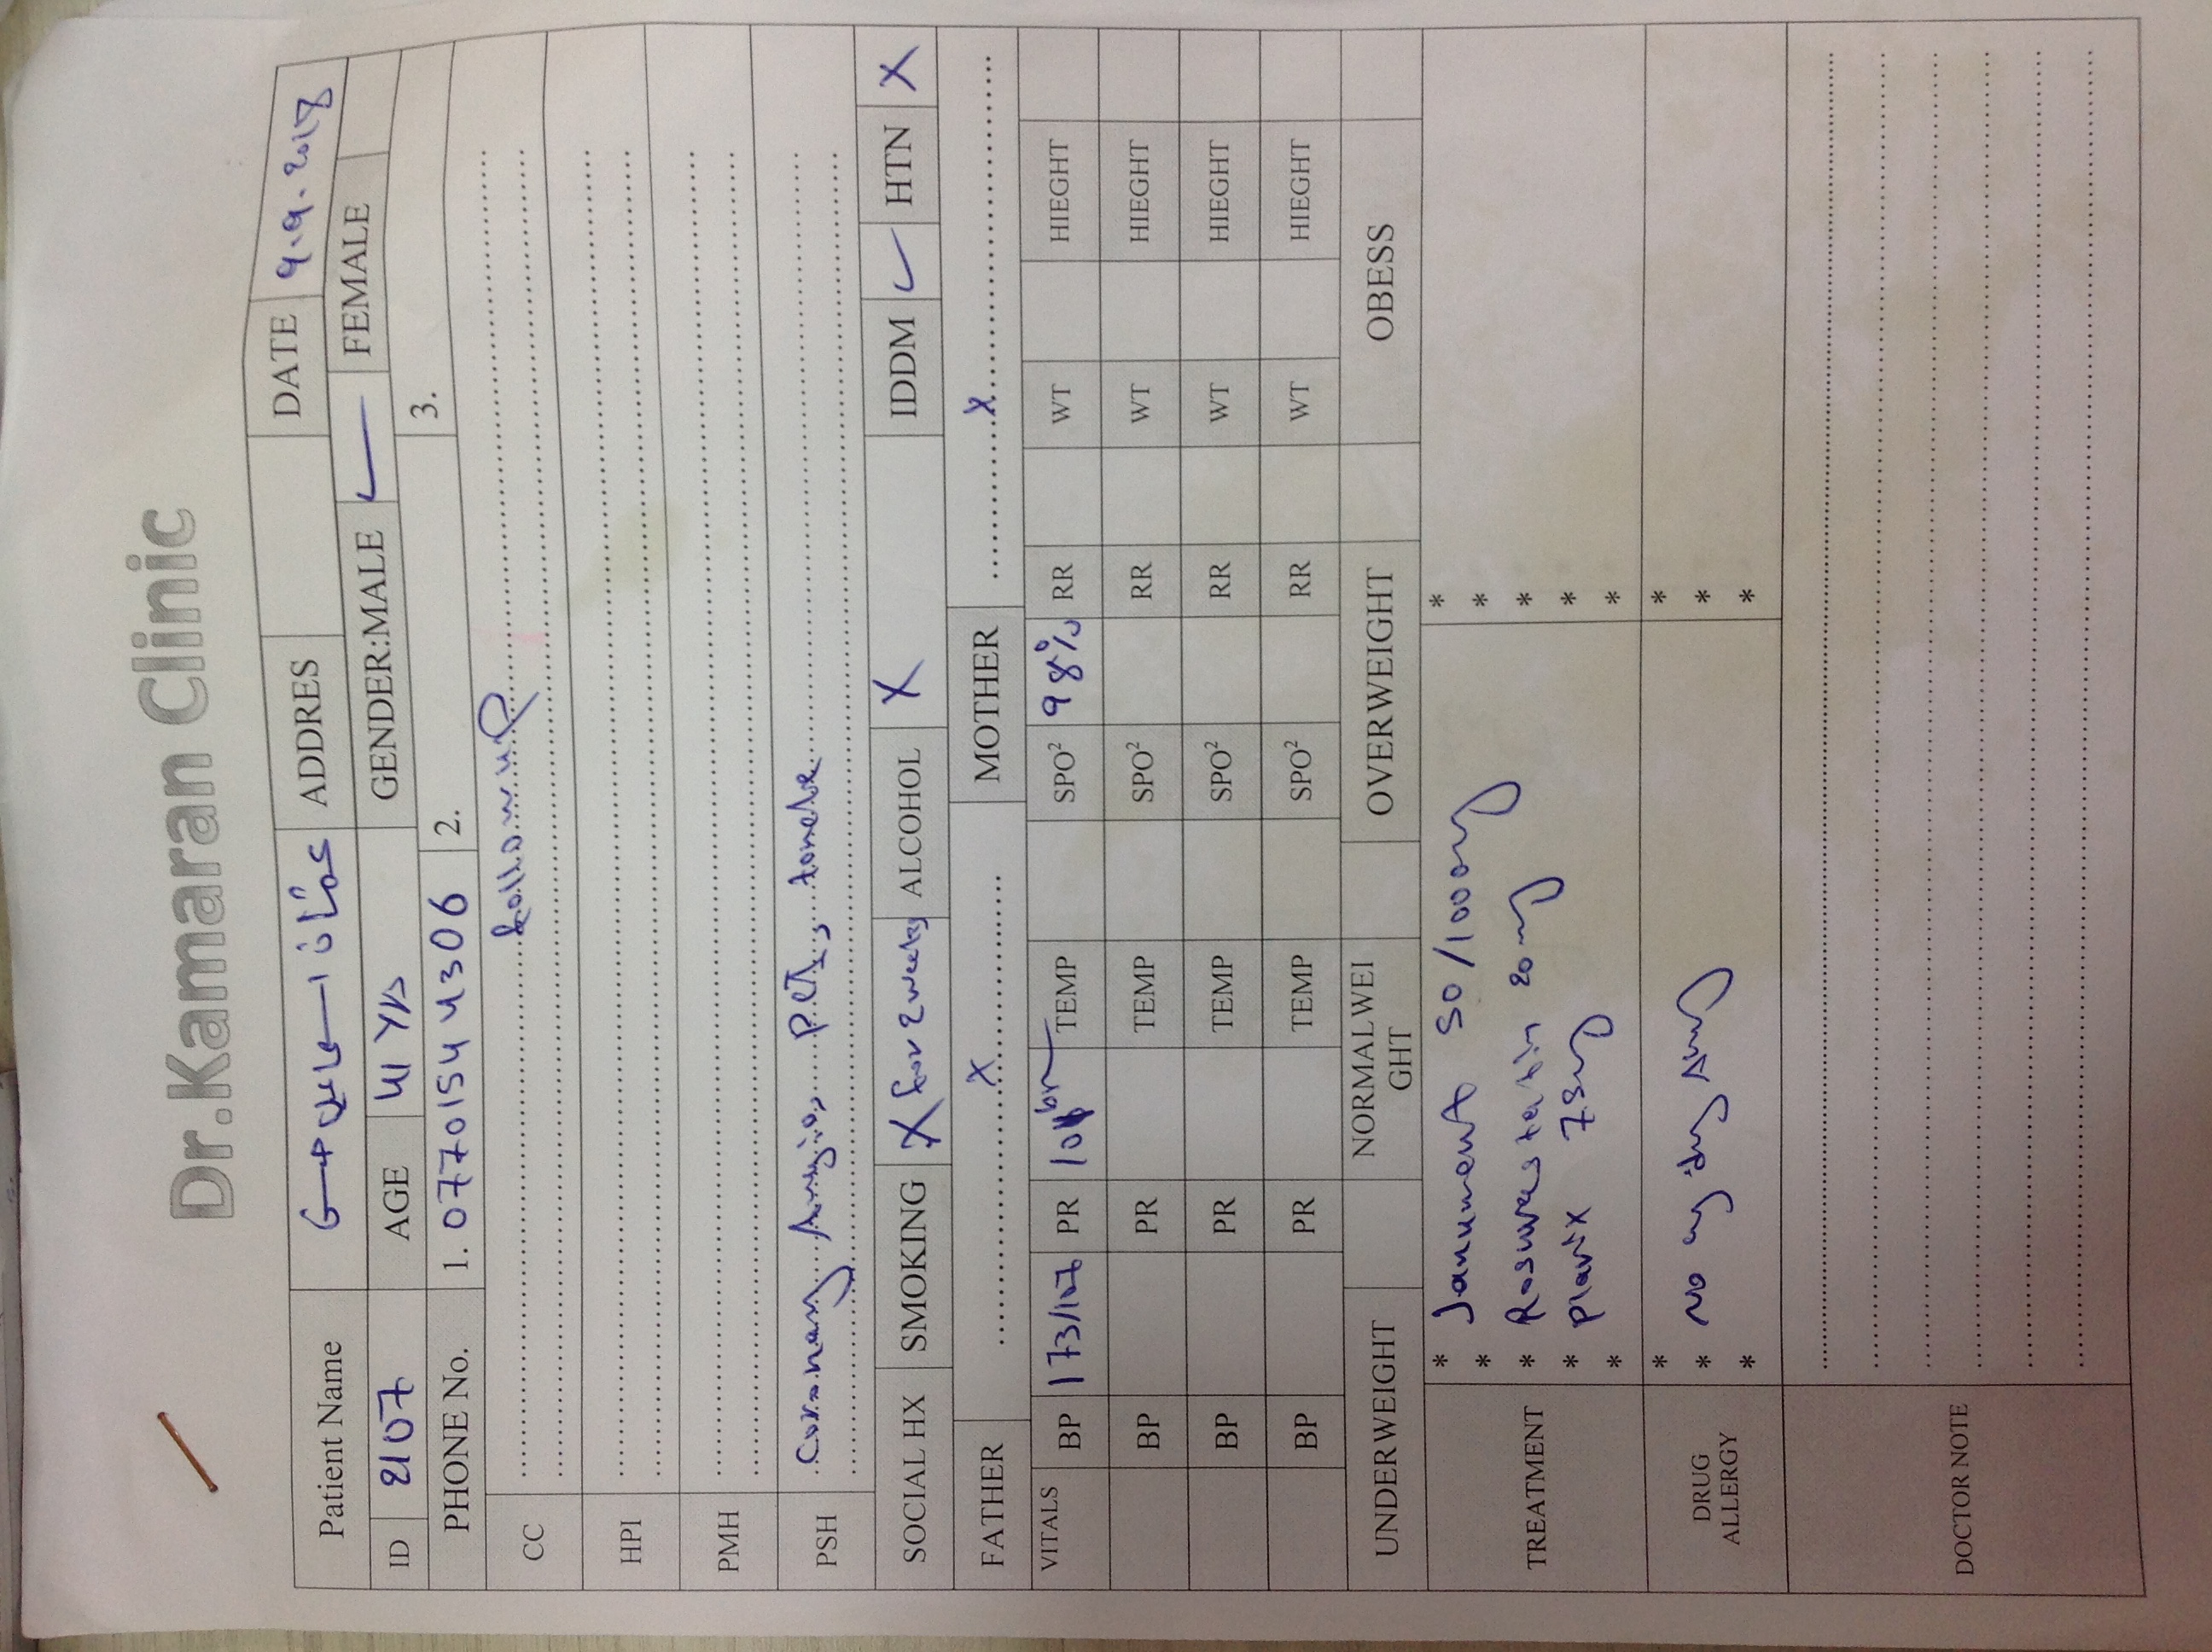 Dr.Kamaran Clinic
Patient Name ADDRES DATE 9.9.2018
ID 2107 AGE 41 Yrs GENDER:MALE ✓ FEMALE
PHONE No. 1. 0770154 4306 2. 3.
CC follow up
HPI
PMH
PSH Coronary Angio, PCI
SOCIAL HX SMOKING X for 2 weeks ALCOHOL X IDDM ✓ HTN X
FATHER X MOTHER X
VITALS BP 173/106 PR TEMP SPO² 98% RR WT HIEGHT
BP PR TEMP SPO² RR WT HIEGHT
BP PR TEMP SPO² RR WT HIEGHT
BP PR TEMP SPO² RR WT HIEGHT
UNDERWEIGHT NORMALWEI GHT OVERWEIGHT OBESS
TREATMENT
* Janument 50/1000mg *
* *
* Rosuvastatin 20mg *
* Plavix 75mg *
* *
DRUG ALLERGY
* *
* No any drug *
* *
DOCTOR NOTE